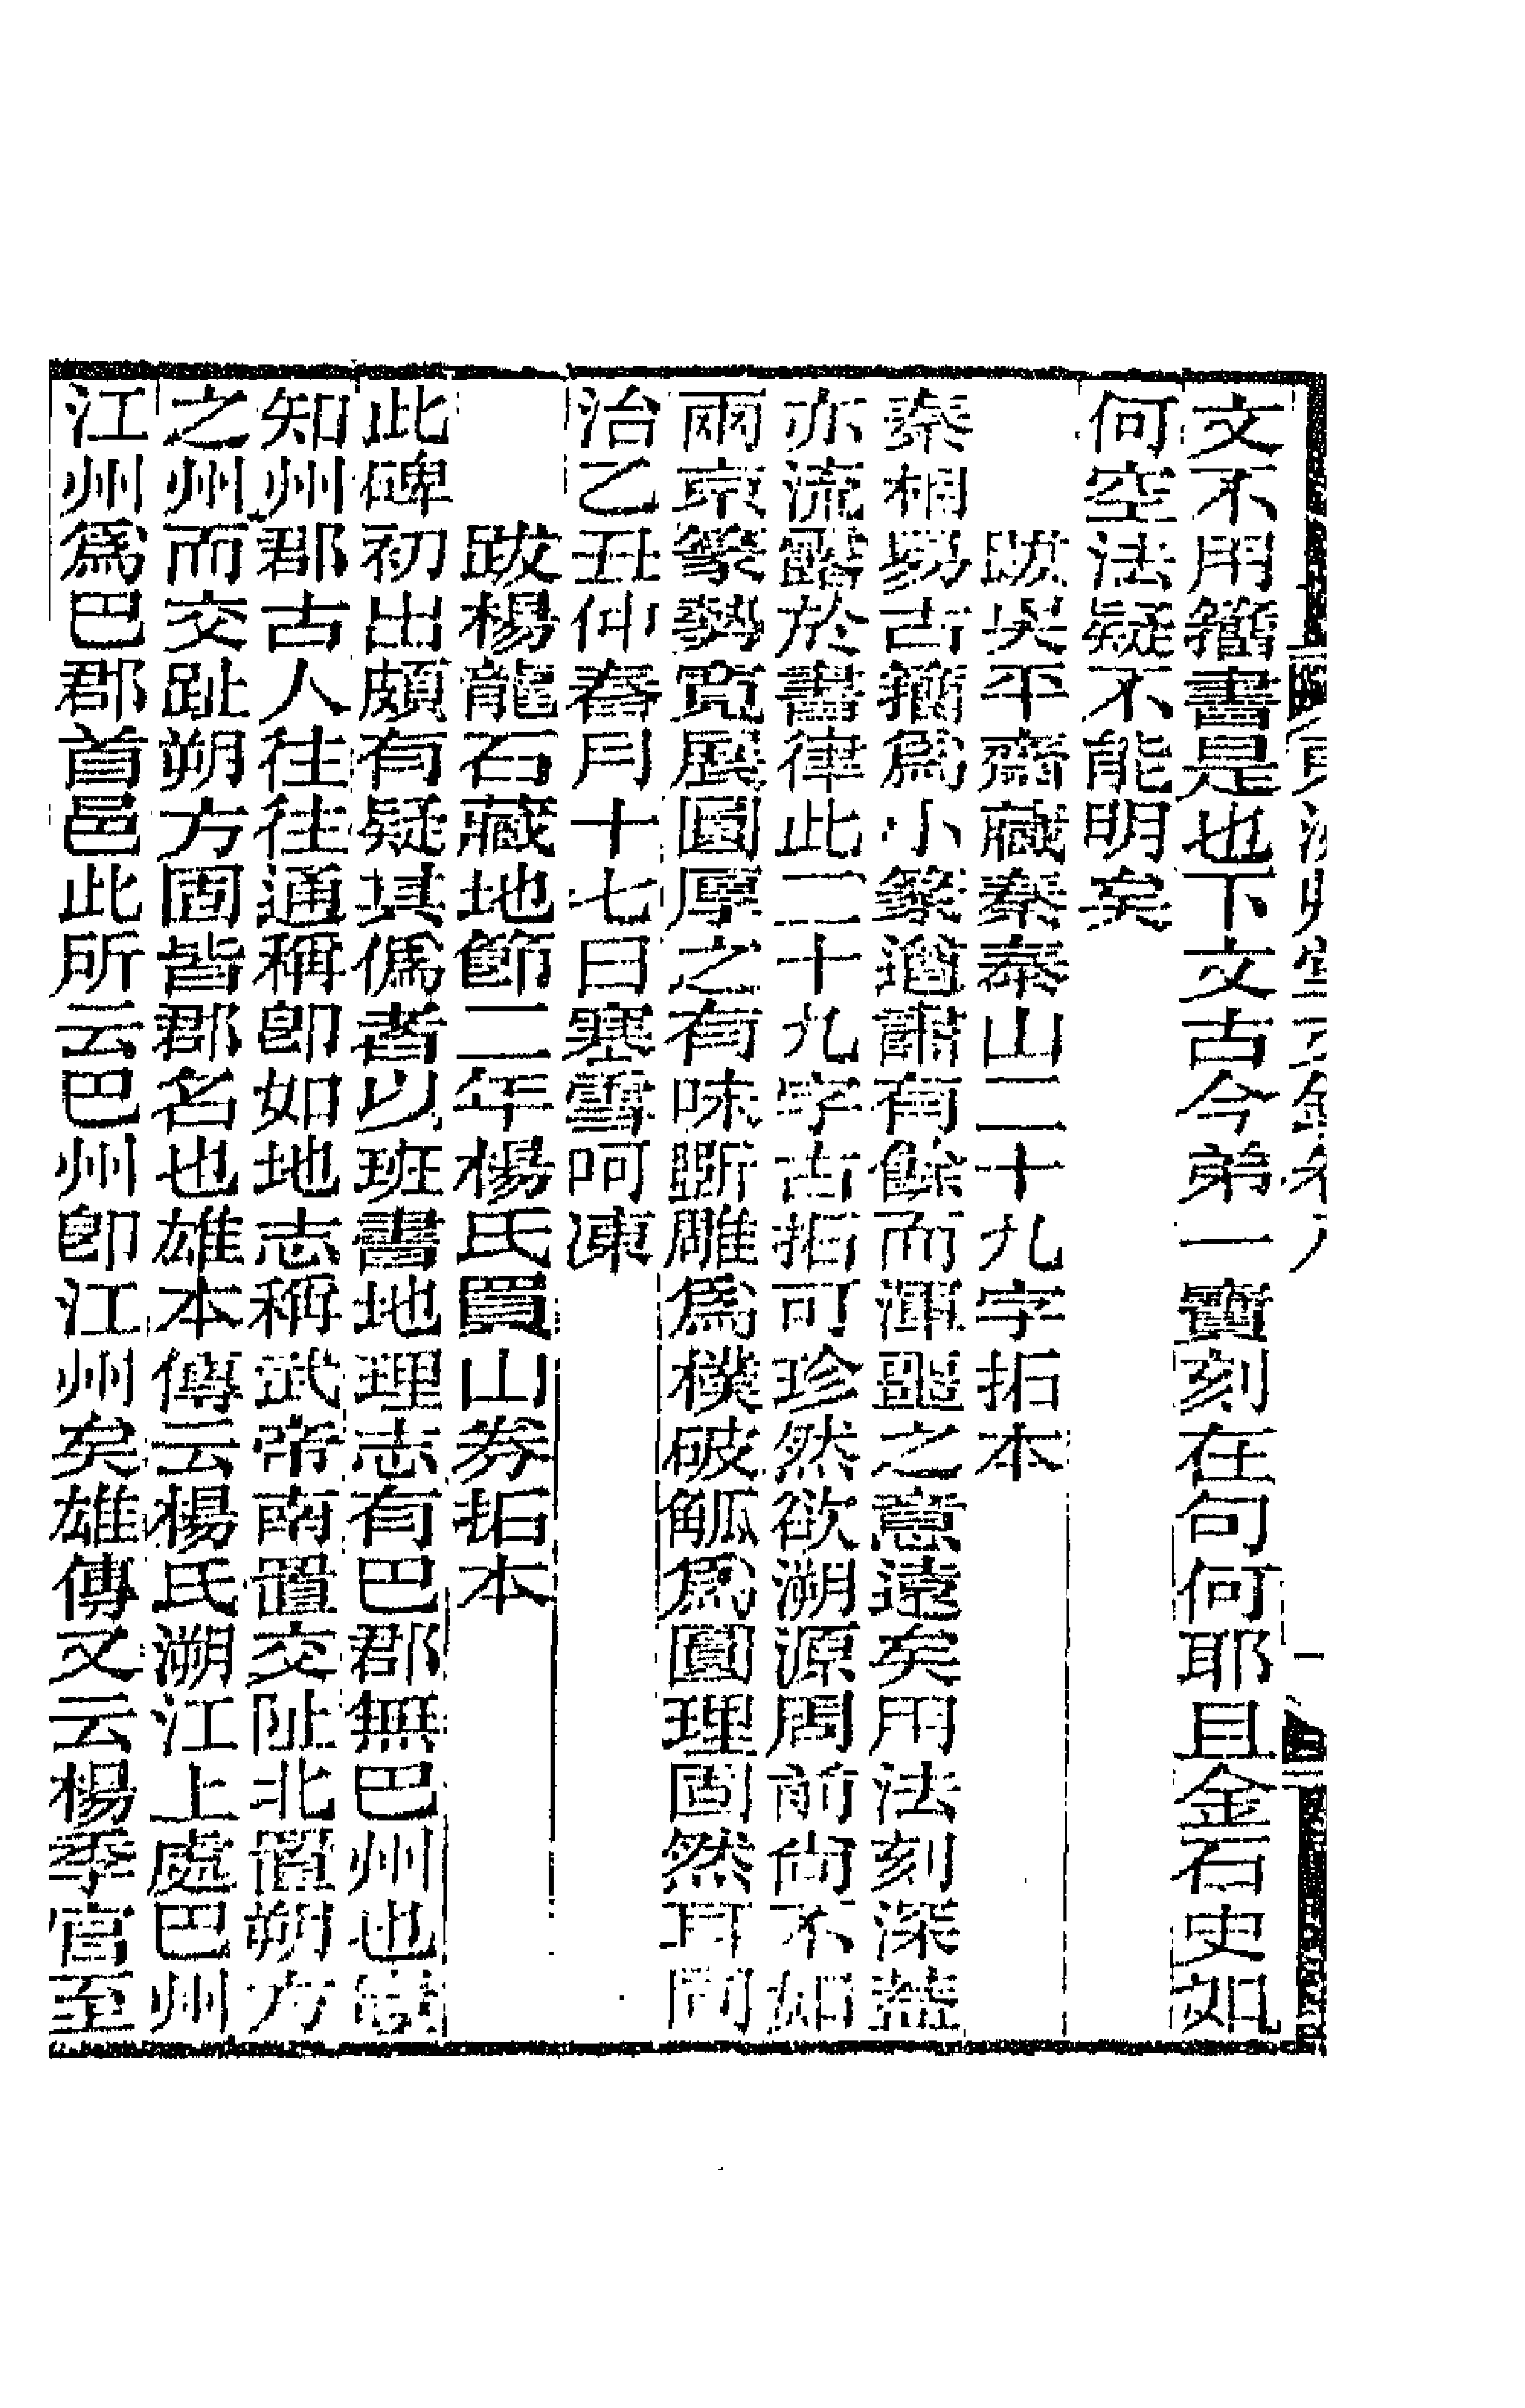 文不用籀書是也下文古今弟一寶刻在句何耶且金石史如
何空法疑不能明矣
跋吳平齋藏秦泰山二十九字拓本
秦相易古籀爲小篆遒肅有餘而渾噩之意遠矣用法刻深蓋
亦流露於書律此二十九字古拓可珍然欲溯源周前尙不如
兩京篆勢寬展圓厚之有味斲雕爲樸破觚爲圜理固然耳同
治乙丑仲春月十七日寒雪呵凍
跋楊龍石藏地節二年楊氏買山券拓本
此碑初出頗有疑其僞者以班書地理志有巴郡無巴州也
知州郡古人往往通稱卽如地志稱武帝南置交阯北置朔方
之州而交趾朔方固皆郡名也雄本傳云楊氏溯江上處巴州
江州爲巴郡首邑此所云巴州卽江州矣雄傳又云楊季官至